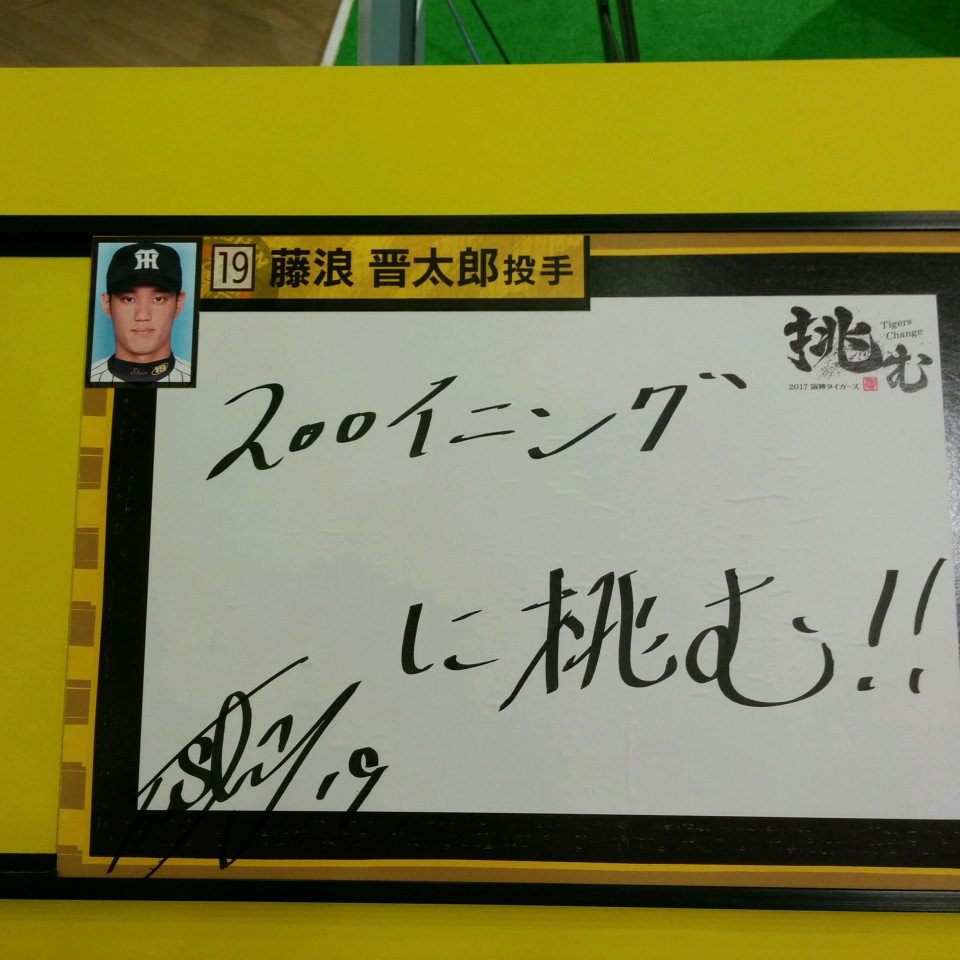 19 藤浪 晋太郎投手
挑む
Tigers
Change
2017 阪神タイガース
200イニング
に挑む!!
19